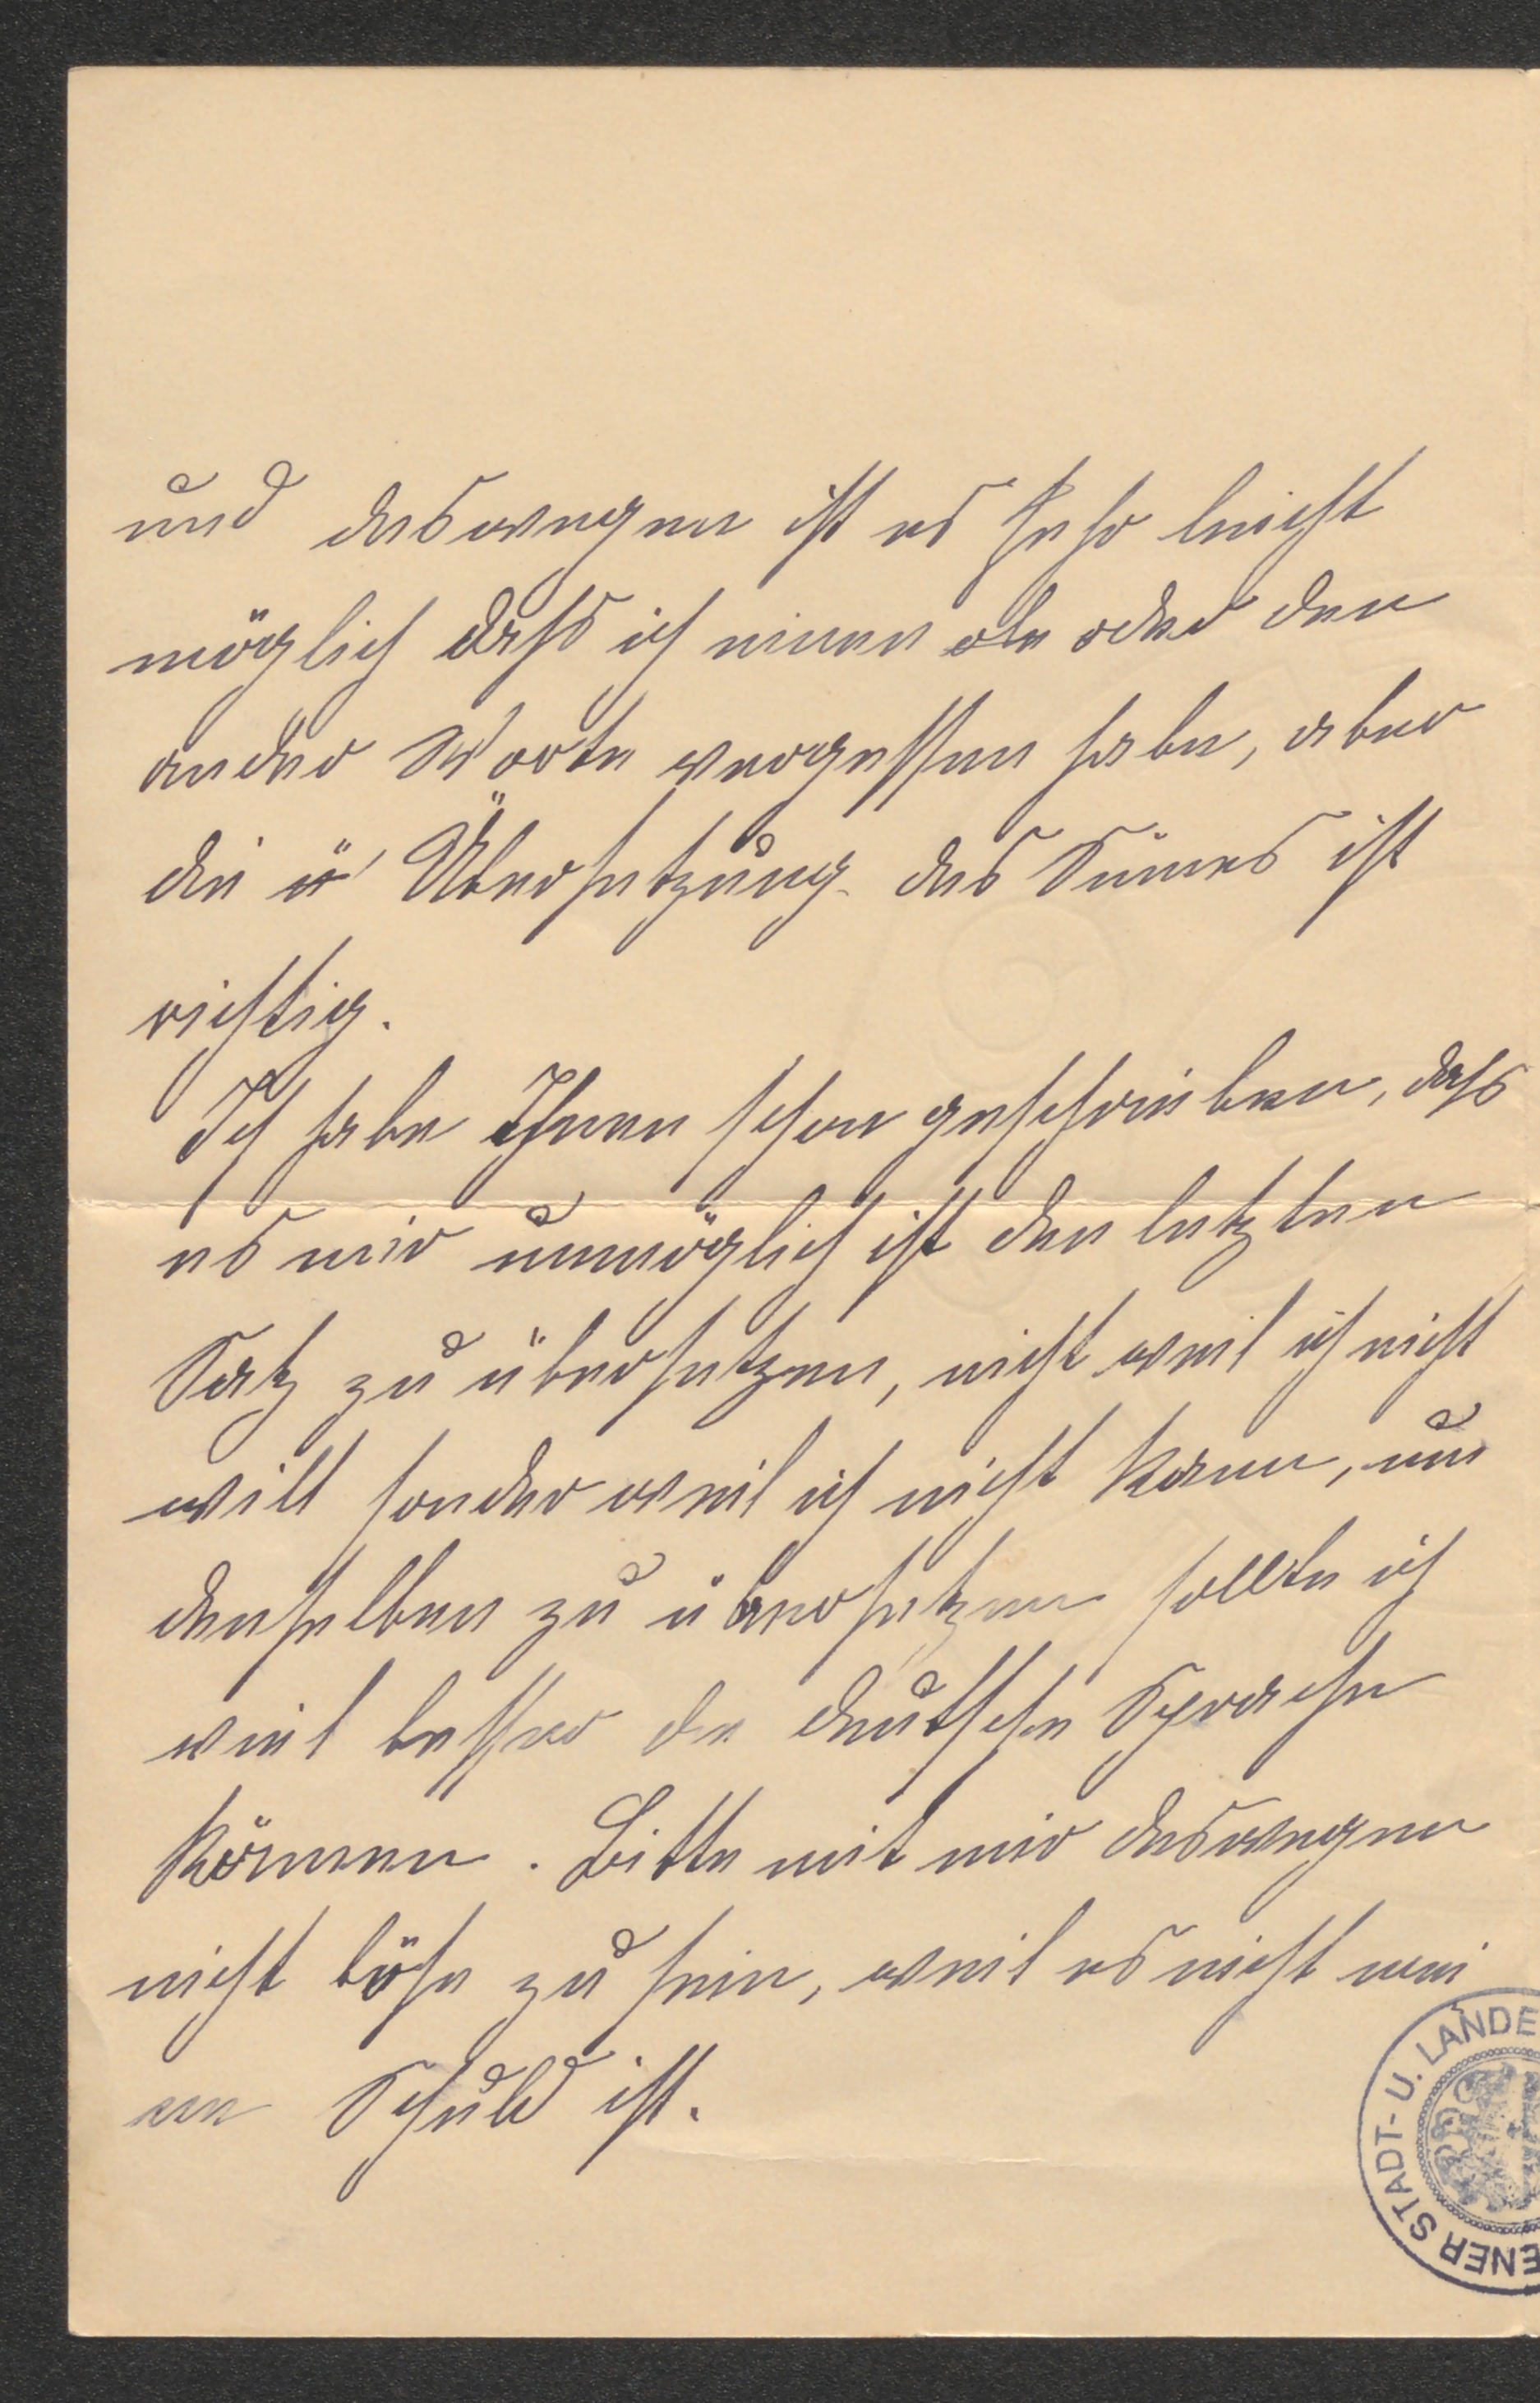 und deswegen ist es sehr leicht
möglich dass ich einen ode oder den
ander Worte vergessen habe, aber
die ü Übersetzung des Sinnes ist
richtig.
Ich habe Ihnen schon geschrieben, dass
es mir unmöglich ist den letzten
Satz zu übersetzen, nicht weil ich nicht
will sonder weil ich nicht kann, um
denselben zu übersetzen sollte ich
viel besser die deutsche Sprache
können. Bitte mit mir deswegen
nicht böse zu sein, weil es nicht mei
ne Schuld ist.
ENER STADT- U. LANDE